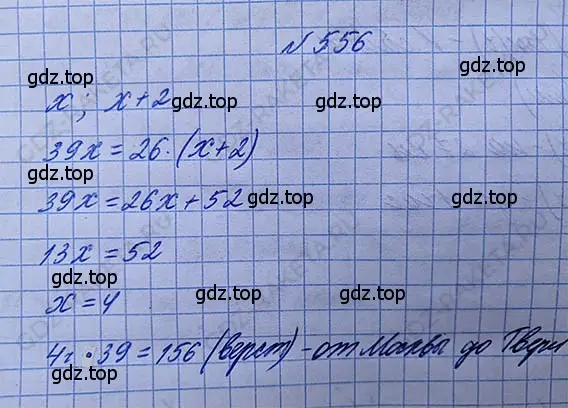 № 556
gdz.top gdz.top
x; x+2 gdz.top gdz.top
39x = 26·(x+2)
gdz.top gdz.top
39x = 26x + 52 gdz.top
13x = 52
gdz.top gdz.top gdz.top
x = 4
gdz.top
4 · 39 = 156 (верст) - от Москвы до Твери
gdz.top gdz.top gdz.top